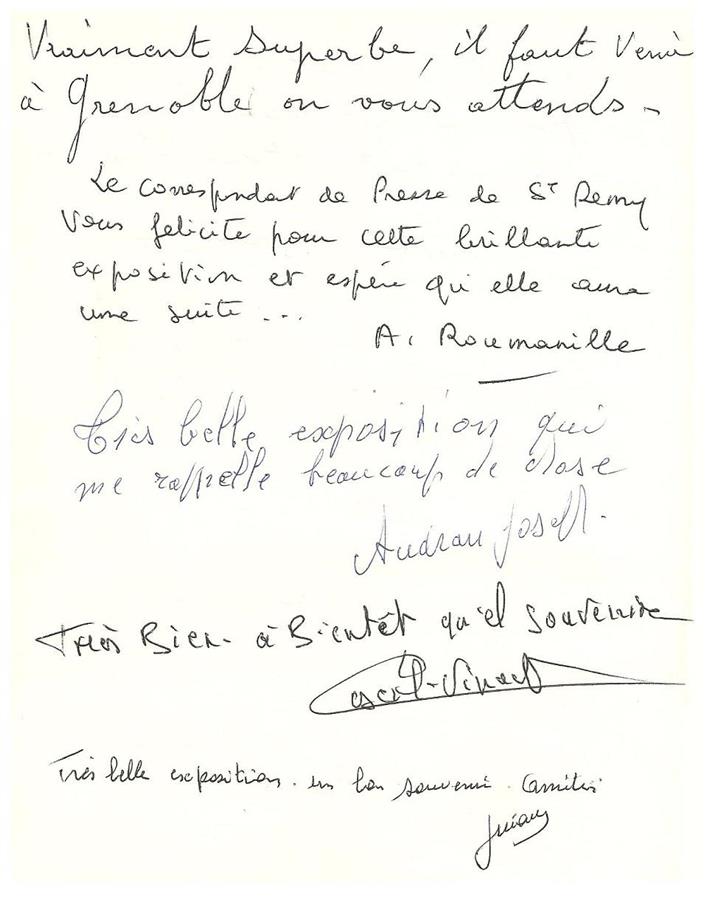 Vraiment superbe, il faut venir
à Grenoble on vous attends -
Le correspondant de Presse de St Remy
Vous felicite pour cette brillante
exposition et espère qu'elle aura
une suite ...
A. Roumanille
Très belle exposition qui
me rappelle beaucoup de chose
Audran Joseph.
Très Bien - à Bientôt qu'el souvenire
Très belle exposition. un bon souvenir. Amitiés